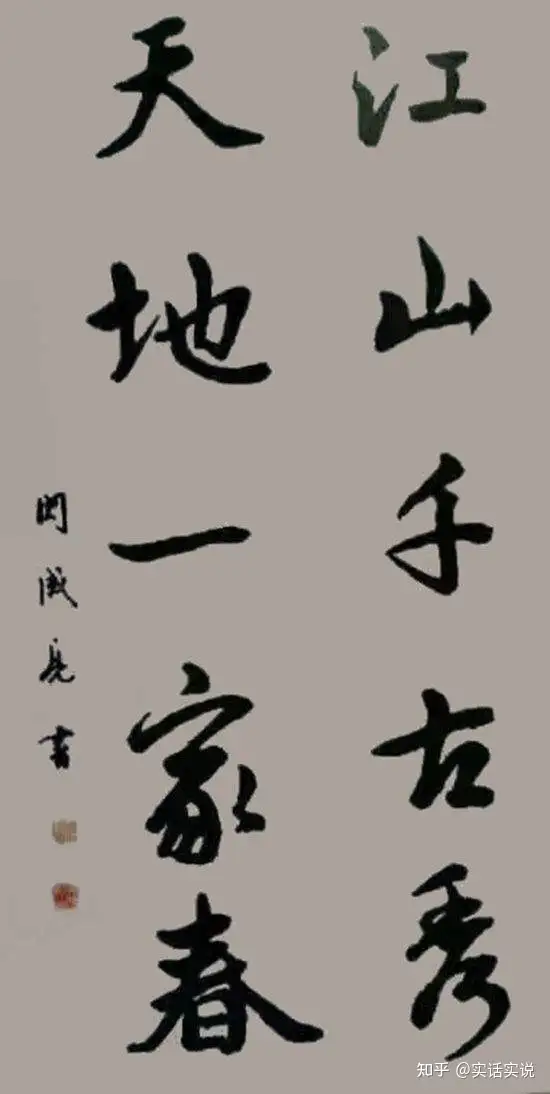 江山千古秀
天地一家春
闵成亮书
知乎 @实话实说